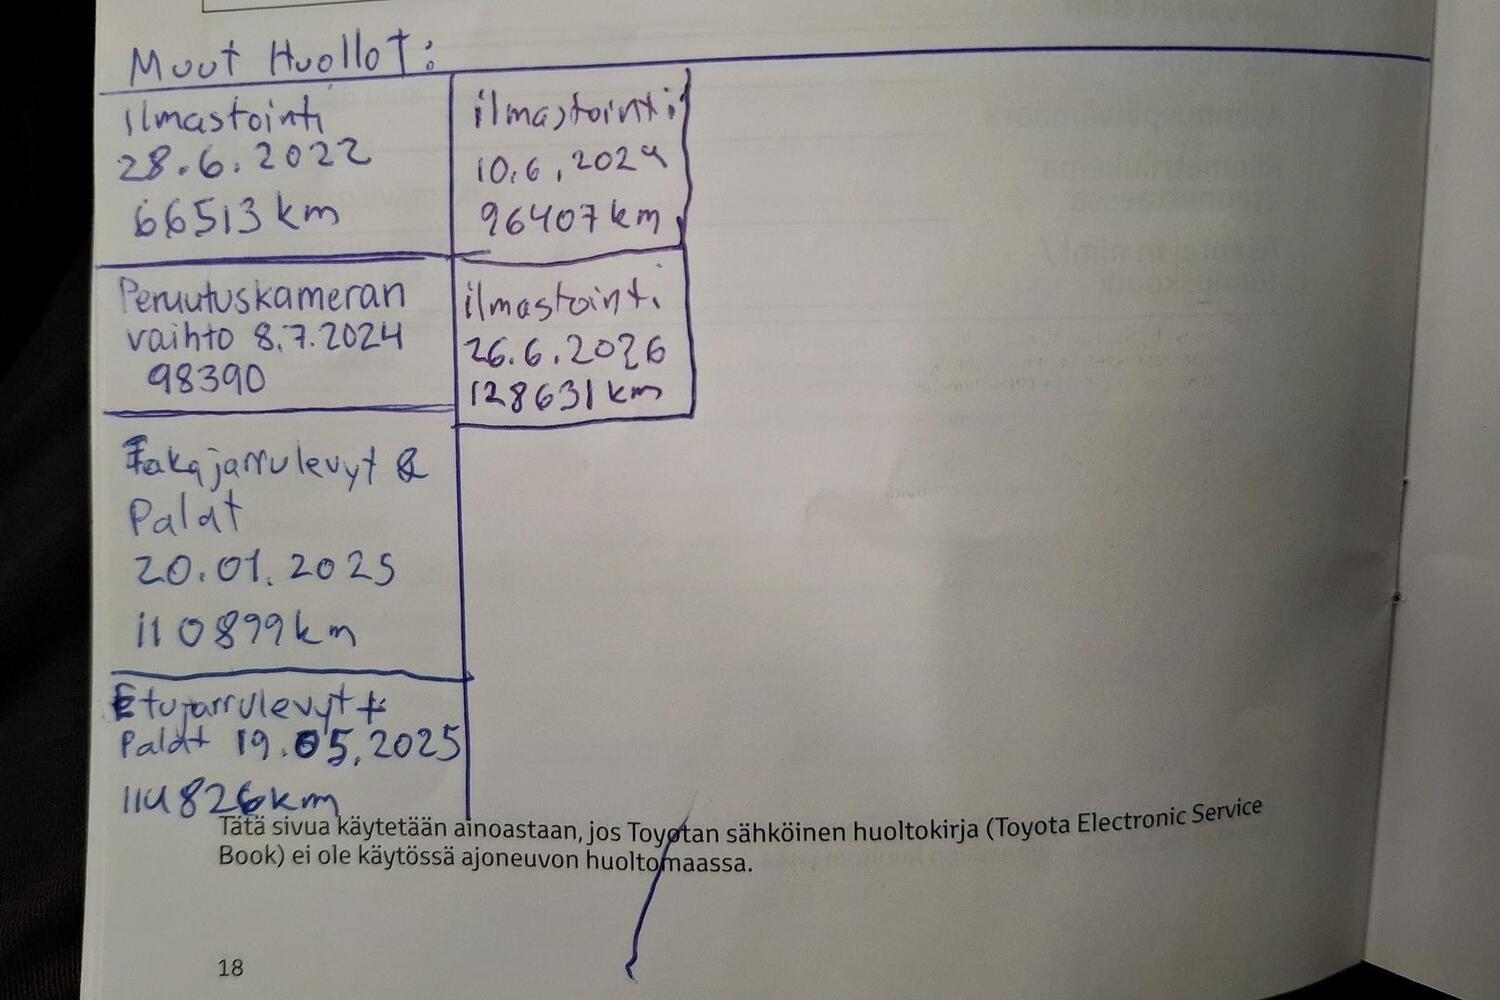 Muut Huollot:
ilmastointi
28.6.2022
66513 km
Peruutuskameran
vaihto 8.7.2024
98390
Takajarrulevyt &
Palat
20.01.2025
110899km
Etujarrulevyt +
Palat 19.05.2025
114826km
ilmastointi
10.6.2024
96407km
ilmastointi
26.6.2026
128631km
Tätä sivua käytetään ainoastaan, jos Toyotan sähköinen huoltokirja (Toyota Electronic Service
Book) ei ole käytössä ajoneuvon huoltomaassa.
18